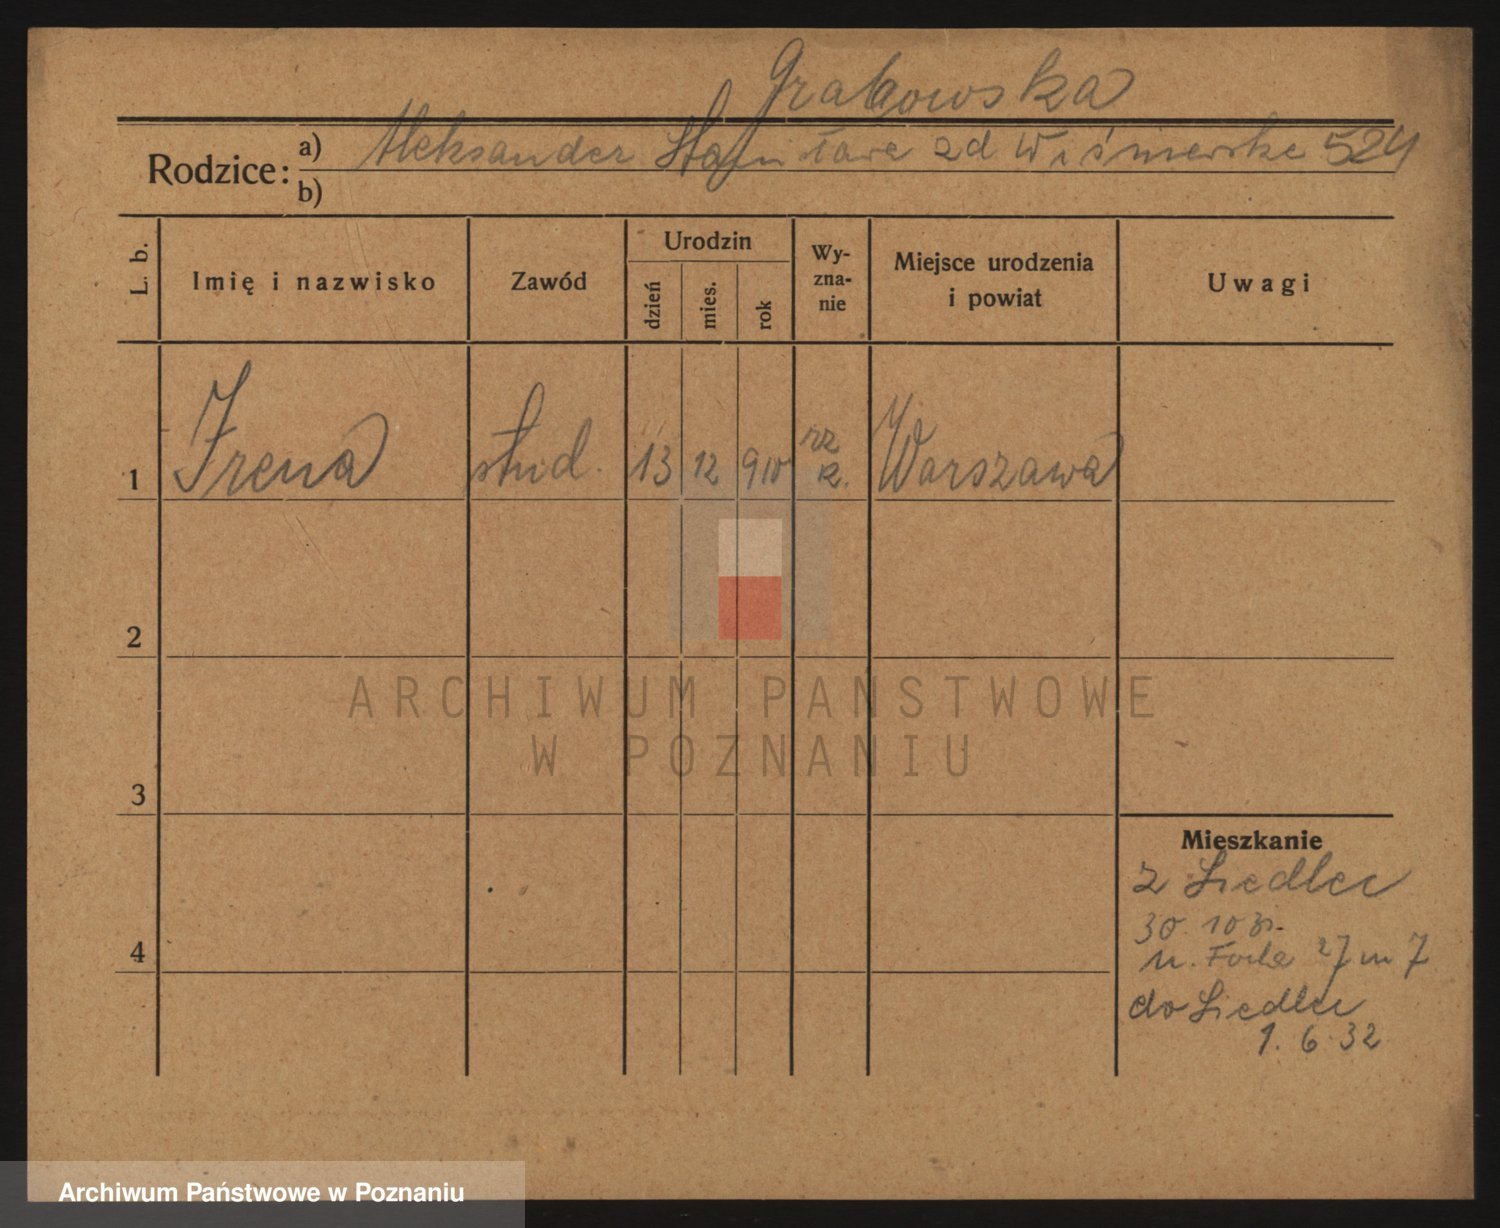 Grabowska
Rodzice: a) Aleksander zd Wiśniewska 524
b)
L. b.
Imię i nazwisko
Zawód
Urodzin
dzień
mies.
rok
Wy-
zna-
nie
Miejsce urodzenia
i powiat
Uwagi
1 Irena stud. 13 12 910 rz k. Warszawa
2
3
4
Mieszkanie
z Siedlec
30. 10 31.
27 m 7
do Siedlec
1. 6. 32
ARCHIWUM PAŃSTWOWE
W POZNANIU
Archiwum Państwowe w Poznaniu